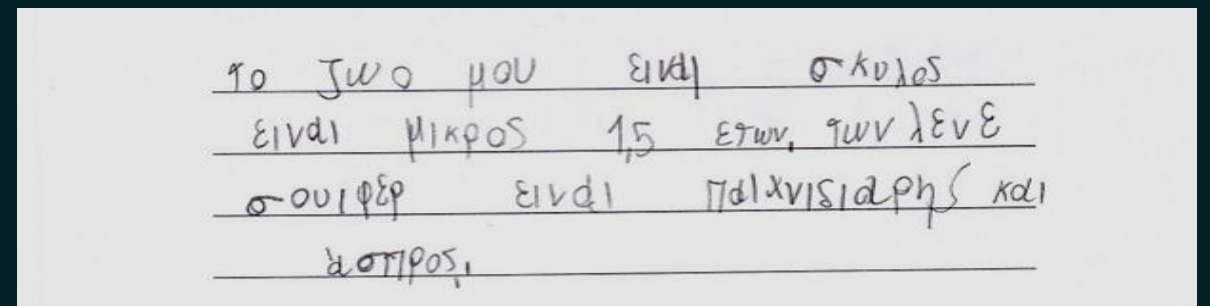 το ζωο μου ειναι σκυλος
ειναι μικρος 1,5 ετων, των λενε
σουιφέρ ειναι παιχνιδιαρης και
άσπρος,